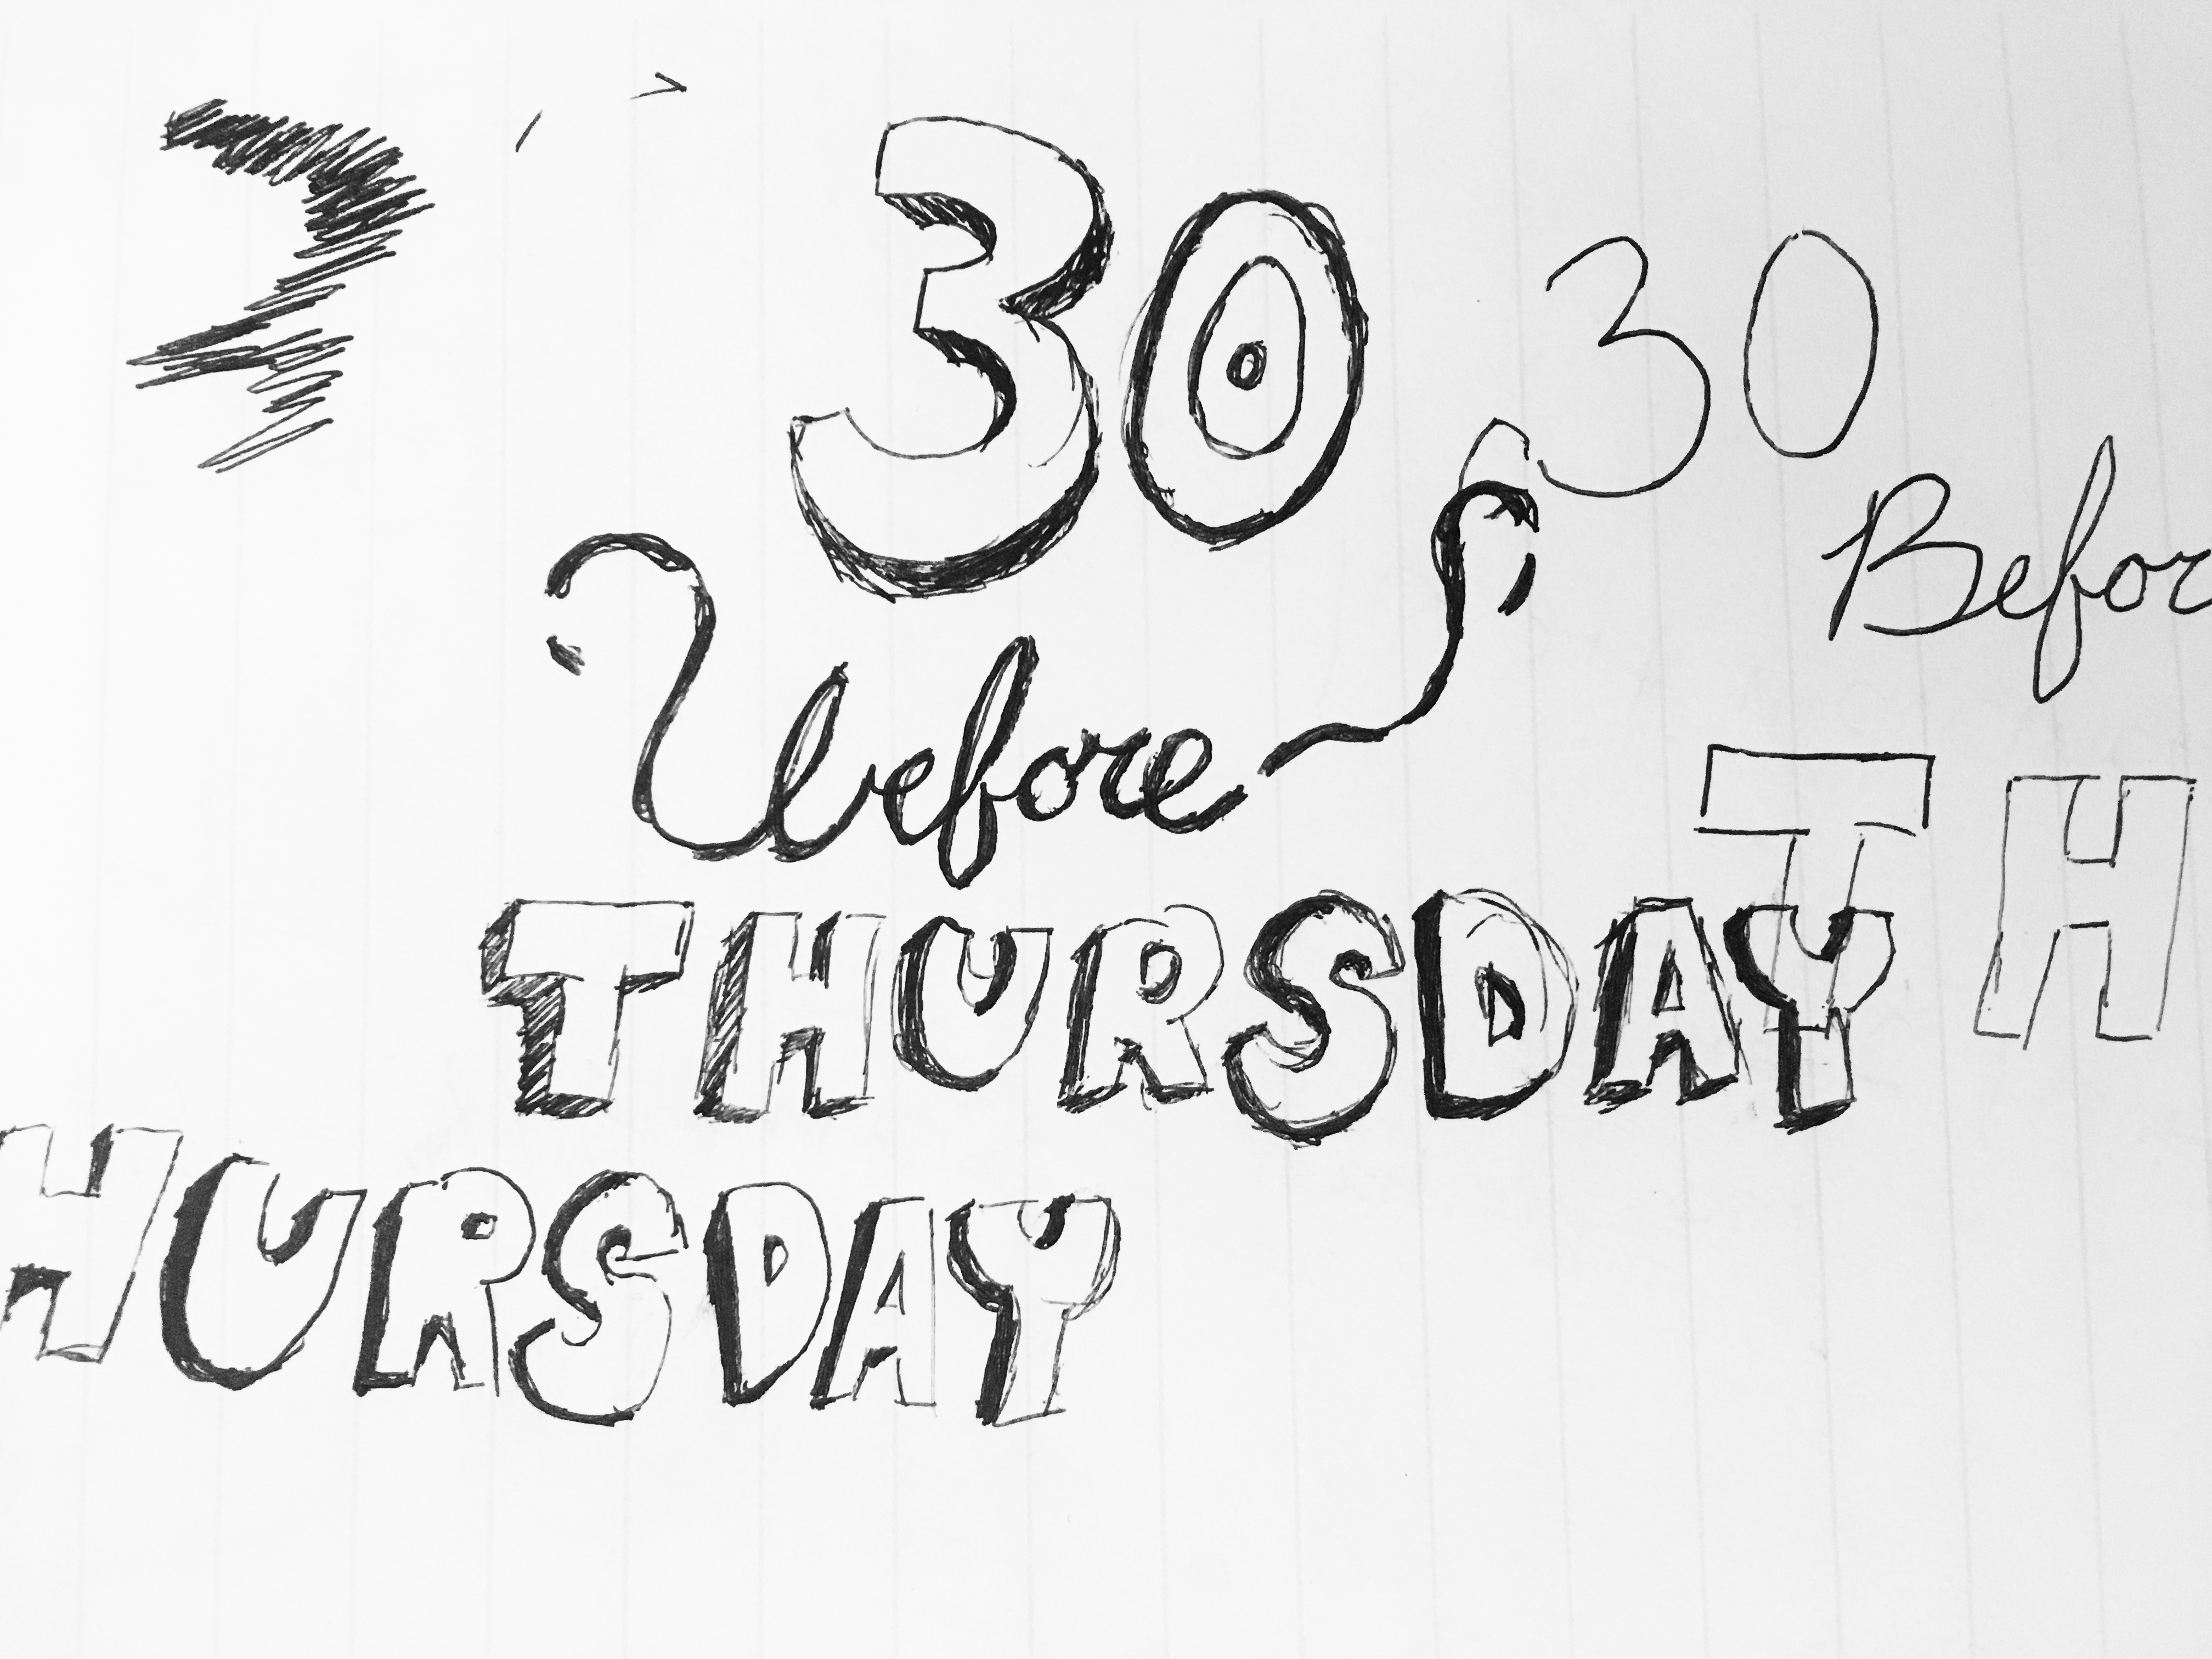 30
30
Befor
before
TH
THURSDAY
HURSDAY